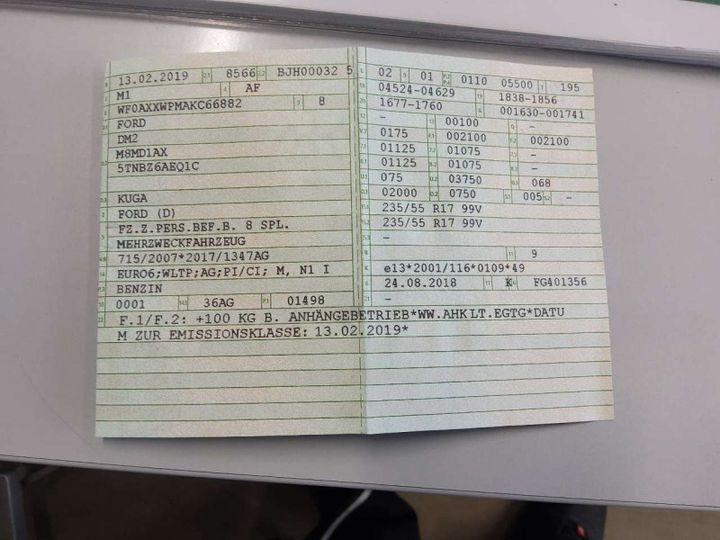 13.02.2019 8566 BJH00032 5
M1 AF
WF0AXXWPMAKC66882 8
FORD
DM2
M8MD1AX
5TNBZ6AEQ1C
KUGA
FORD (D)
FZ.Z.PERS.BEF.B. 8 SPL.
MEHRZWECKFAHRZEUG
715/2007*2017/1347AG
EURO6;WLTP;AG;PI/CI; M, N1 I
BENZIN
0001 36AG 01498
02 01 0110 05500 195
04524-04629 1838-1856
1677-1760 001630-001741
- 00100 -
0175 002100 002100
01125 01075 -
01125 01075 -
075 03750 068
02000 0750 005 -
235/55 R17 99V
235/55 R17 99V
-
9
e13*2001/116*0109*49
24.08.2018 K FG401356
-
F.1/F.2: +100 KG B. ANHÄNGEBETRIEB*WW.AHK LT.EGTG*DATU
M ZUR EMISSIONSKLASSE: 13.02.2019*